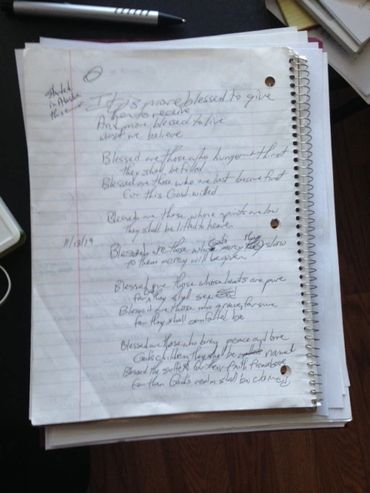 It's more blessed to give
than to receive
And more blessed to live
what we believe
Blessed are those who hunger + thirst
they shall be filled
Blessed are those who are last become first
For this God willed
Blessed are those whose spirits are low
they shall be lifted to heaven
11/18/19
Blessed are those who mercy show
to them mercy will be given
Blessed are those whose hearts are pure
for they shall see
Blessed are those who grieve, for sure
for they shall comforted be
Blessed are those who bring peace and love
God's children they shall be named
Blessed they suffer for their faith
for them God's realm shall be claimed